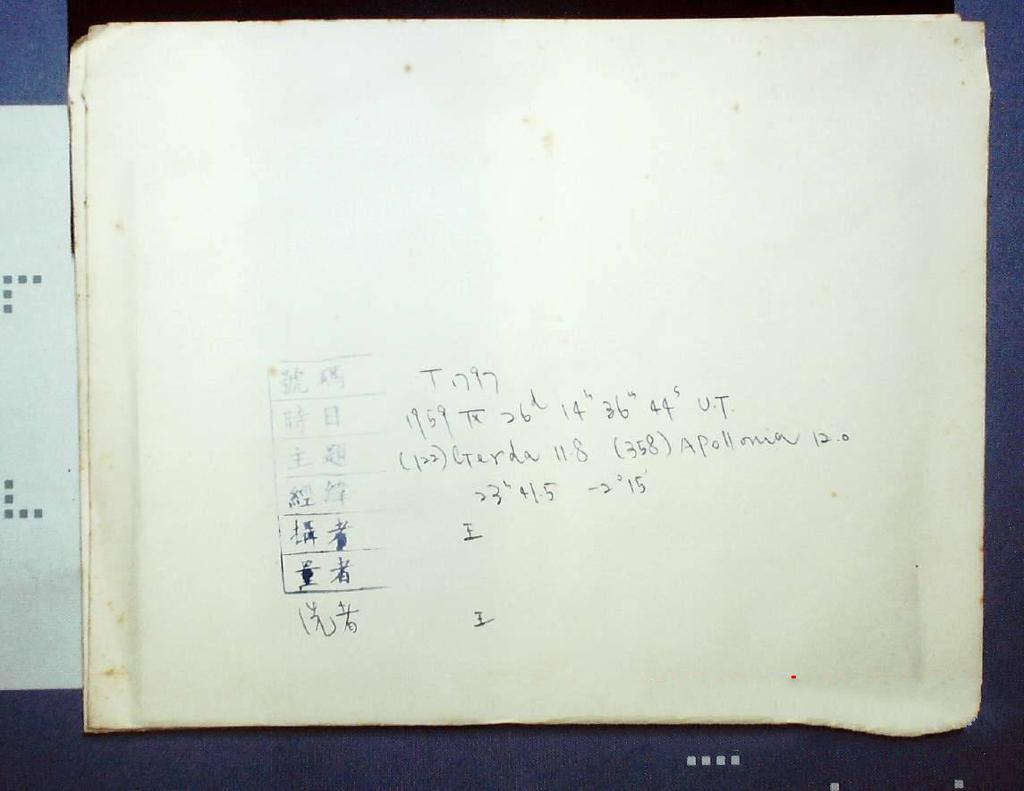 號碼 T1797
時日 1959 IX 26d 14h 36m 44s U.T.
主題 (122) Gerda 11.8 (358) Apollonia 12.0
經緯 23h 41.5 -2°15'
攝者 王
量者
洗者 王